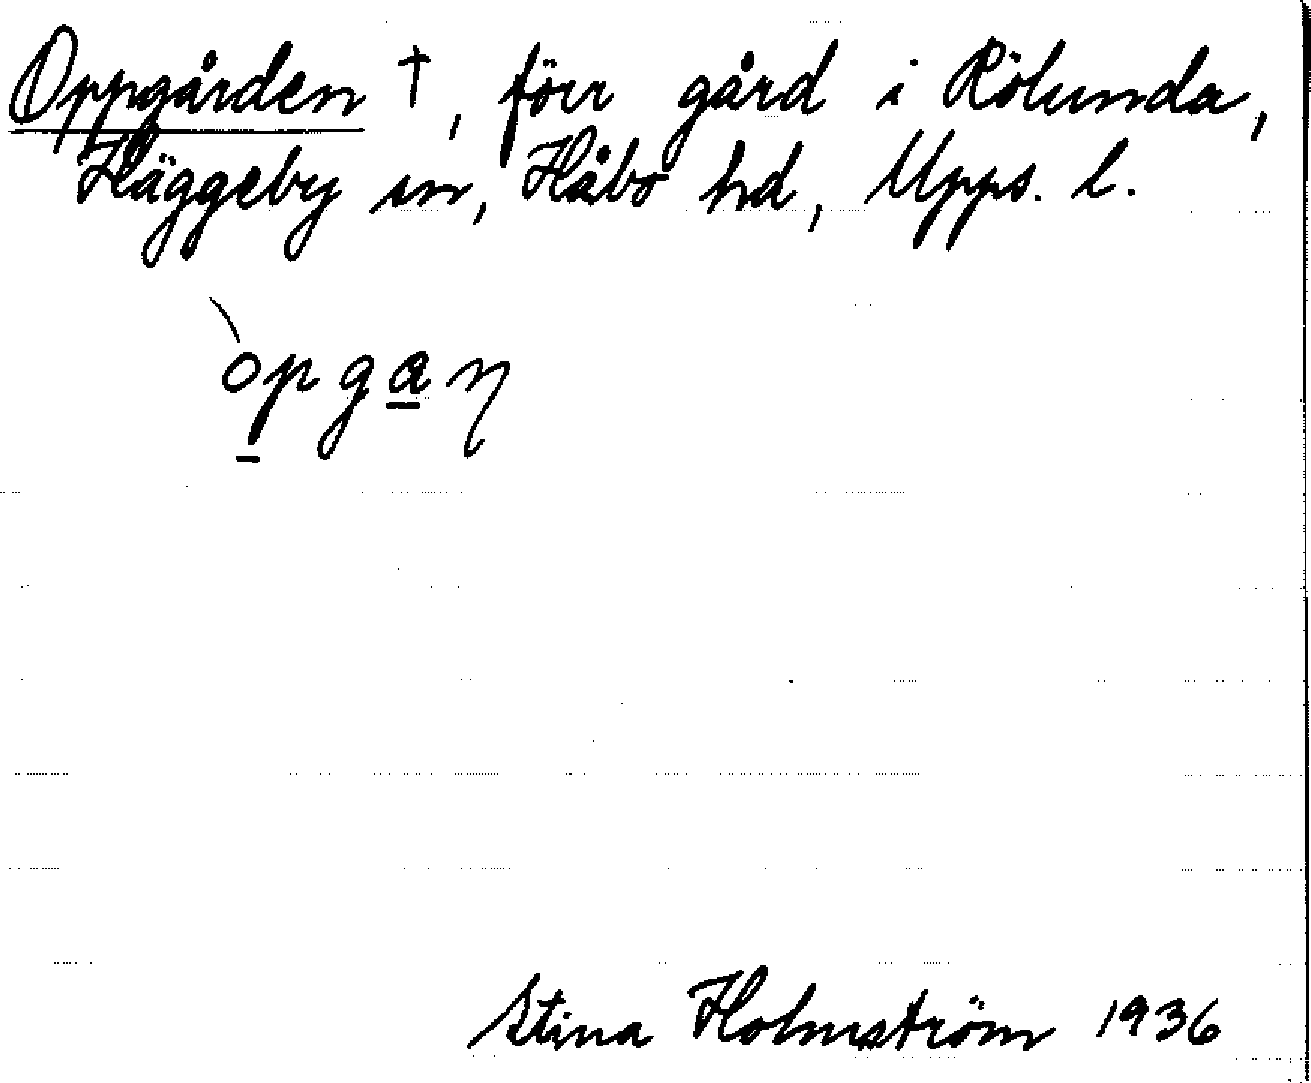 Oppgården †, förr gård i Rölunda,
Häggeby sn, Håbo hd, Upps. l.
òpgaṇ
Stina Holmström 1936